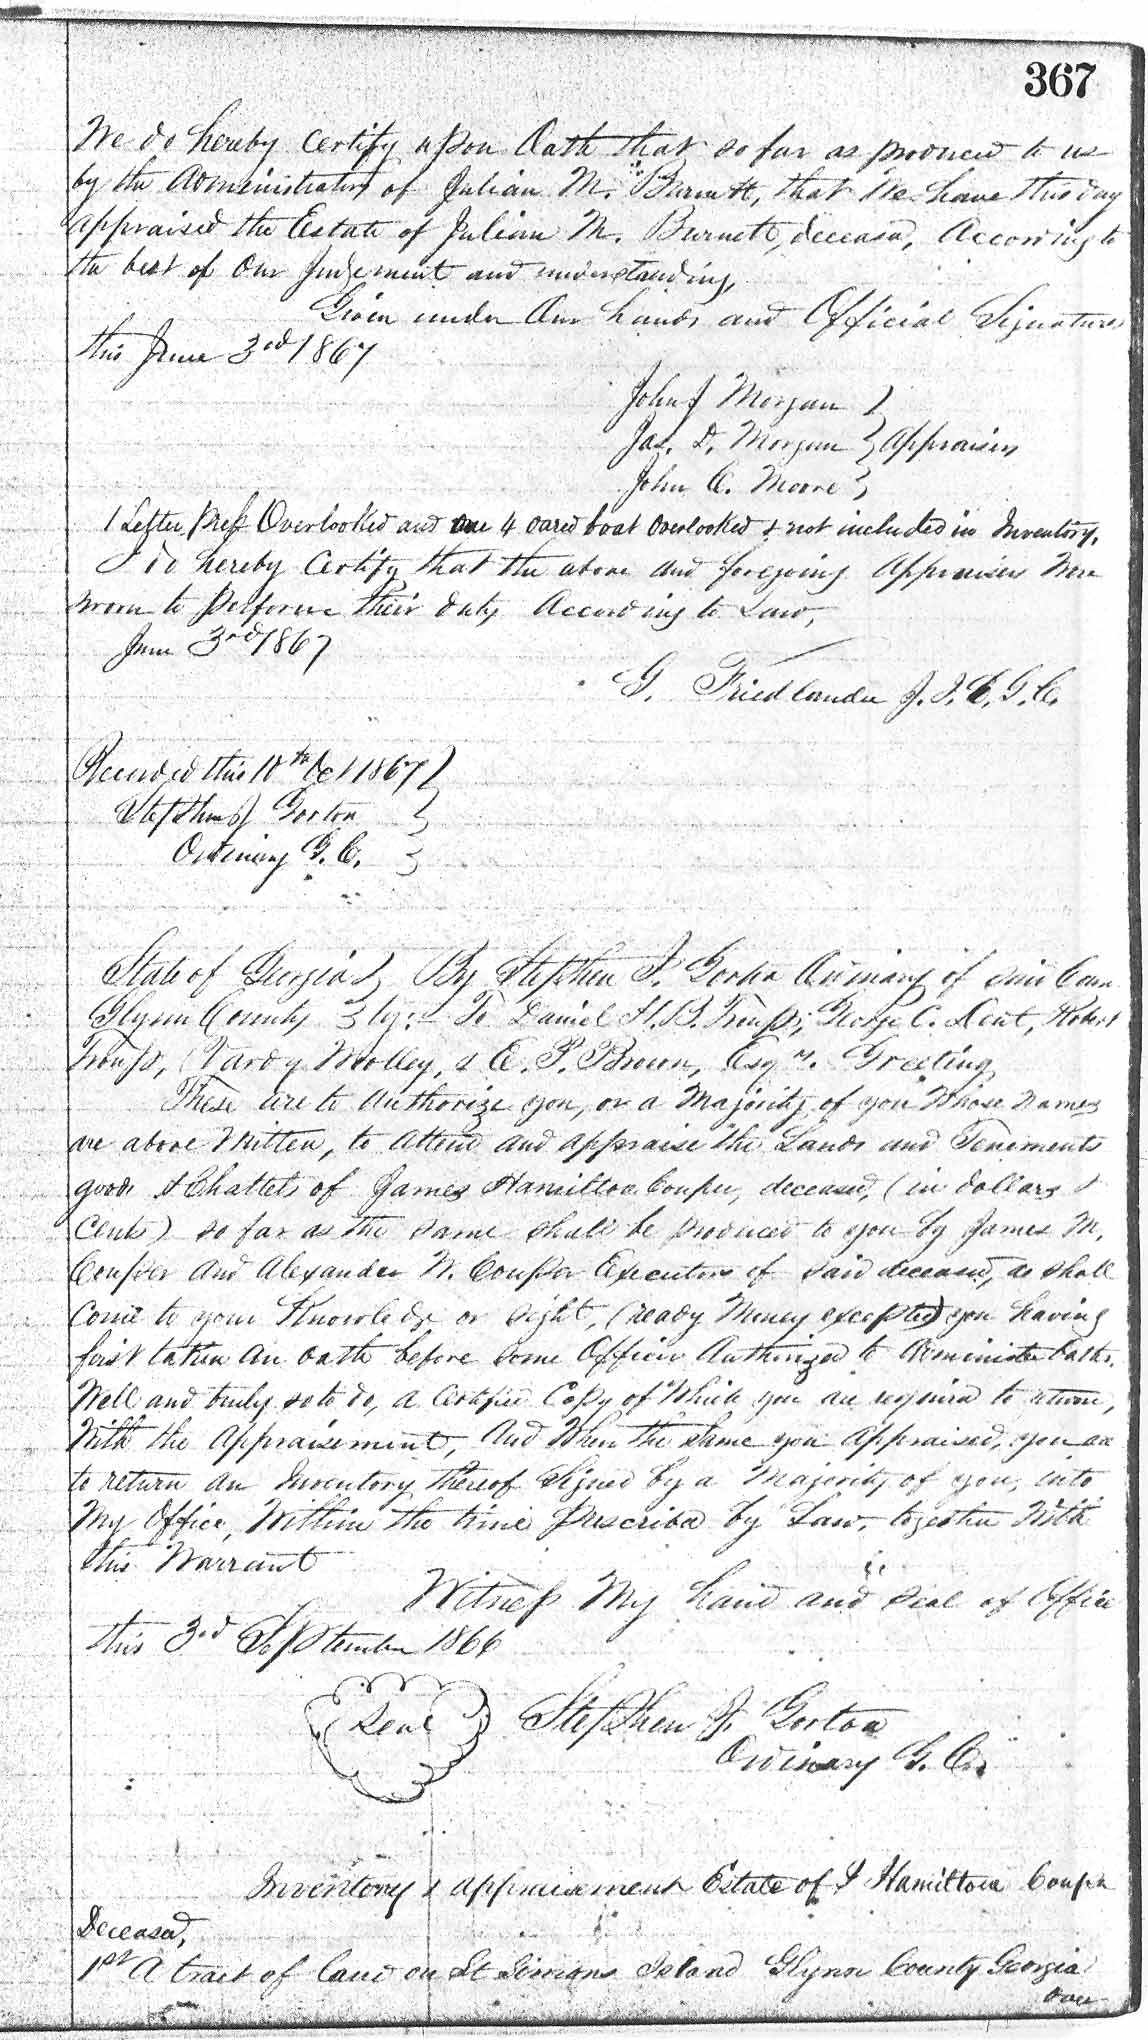 367
We do hereby Certify upon Oath that so far as produced to us
by the Administrator of Julian M. Burnett, that We have this day
appraised the Estate of Julian M. Burnett, deceased, According to
the best of Our Judgement and understanding,
Given under Our hands and Official Signatures
this June 3rd 1867
John J Morgan }
Jas. D. Morgan } Appraisers
John C. Moore }
1 Letter press Overlooked and one 4 oared boat overlooked & not included in Inventory.
I do hereby Certify that the above and foregoing Appraisers Were
sworn to perform their duty According to Law,
June 3rd 1867
G. Friedlander J. I. C. G. C.
Recorded this 10th Oct 1867 }
Stephen J Gorton }
Ordinary G. C. }
State of Georgia } By Stephen J. Gorton Ordinary of said Coun
Glynn County } ty:- To Daniel H. B. Troup, George C. Dent, Robert
Troup, Vardy Woolley, & E. P. Brown, Esqrs. Greeting
These are to Authorize you, or a Majority of you Whose Names
are above Written, to attend and appraise the Lands and Tenements
goods & Chattels of James Hamilton Couper, deceased, (in dollars &
Cents) so far as the same shall be produced to you by James M.
Couper and Alexander W. Couper Executors of said deceased, as shall
Come to your Knowledge or sight, (ready Money excepted) you having
first taken an oath before some Officer Authorized to Administer Oaths.
Well and truly so to do, a Certified Copy of Which you are required to return,
With the Appraisement, And When the same you Appraised, you are
to return an Inventory thereof Signed by a Majority of you, into
My Office, Within the time Prescribed by Law, together With
this Warrant
Witness My hand and seal of Office
this 3rd September 1866
Seal Stephen J. Gorton
Ordinary G. Co.
Inventory & appraisement Estate of J Hamilton Couper
Deceased,
1st A tract of land on St Simons Island Glynn County Georgia
over